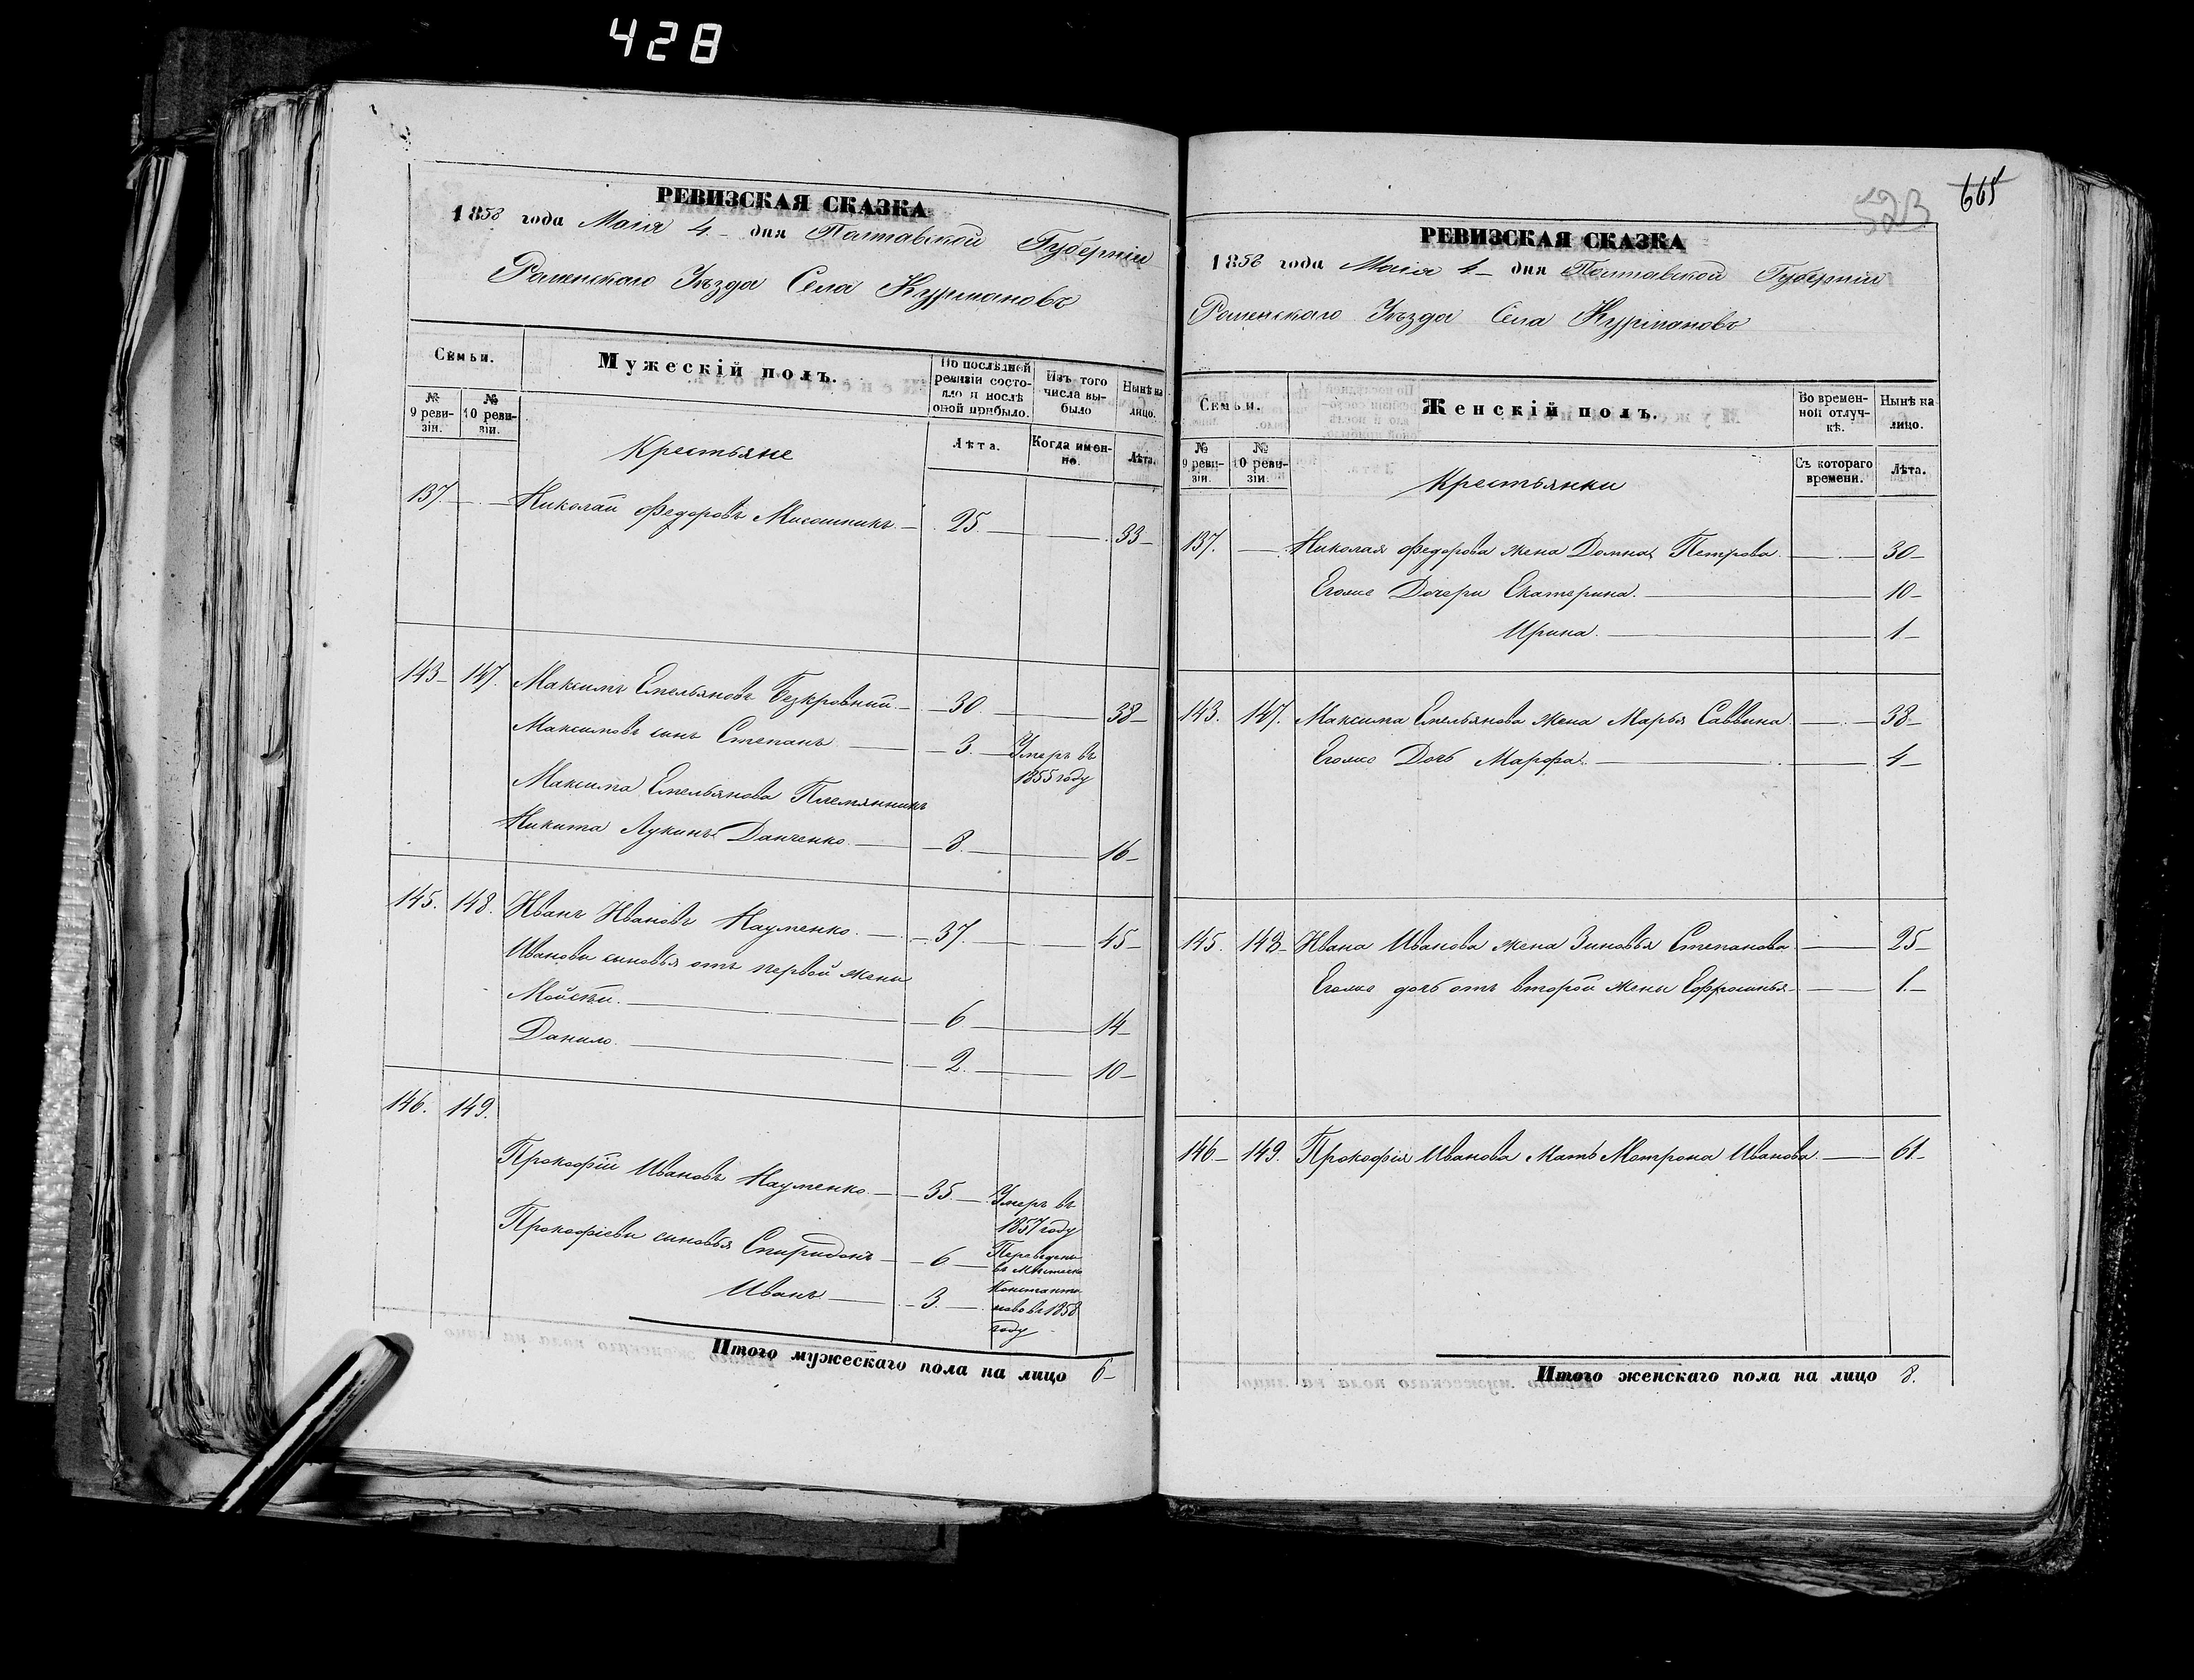 428
РЕВИЗСКАЯ СКАЗКА
1858 года Маія 4 дня Полтавской Губерніи
Роменскаго Уѣзда Села Курмановъ
Семьи.
Мужескій полъ.
По послѣдней ревизіи состояло и послѣ оной прибыло.
Изъ того числа выбыло
Нынѣ на лицо.
№ 9 ревизіи.
№ 10 ревизіи.
Крестьяне
Лѣта.
Когда именно.
Лѣта.
137. Николай Федоровъ 25 33
143 147. Максимъ Емельяновъ Безкровный 30 38
Максимовъ сынъ Степанъ 3. Умеръ въ
1855 году
Максима Емельянова Племянникъ
Никита Лукинъ Данченко 8. 16
145. 148. Иванъ Ивановъ Науменко. 37. 45
Ивановы сыновья отъ первой жены
Мойсѣй. 6 14
Данило. 2. 10
146. 149.
Прокофій Ивановъ Науменко. 35 Умеръ въ
1857 году
Прокофіевы сыновья Спиридонъ 6 Переведены
въ Мѣстеско
Иванъ 3. Константи
ново въ 1858
году
Итого мужескаго пола на лицо 6
523 665
РЕВИЗСКАЯ СКАЗКА
1858 года Маія 4 дня Полтавской Губерніи
Роменскаго Уѣзда Села Курмановъ
Семьи.
Женскій полъ.
Во временной отлучкѣ.
Нынѣ на лицо.
№ 9 ревизіи.
№ 10 ревизіи.
Крестьянки
Съ котораго времени.
Лѣта.
137. Николая Федорова жена Домна Петрова 30
Егоже Дочери Екатерина. 10
Ирина. 1
143. 147. Максима Емельянова жена Марья Саввина 38
Егоже Дочь Марфа. 1
145. 148 Ивана Иванова жена Зиновья Степанова 25
Егоже дочь отъ второй жены Ефросинья 1.
146 149. Прокофія Иванова Мать Мотрона Иванова 61
Итого женскаго пола на лицо 8.